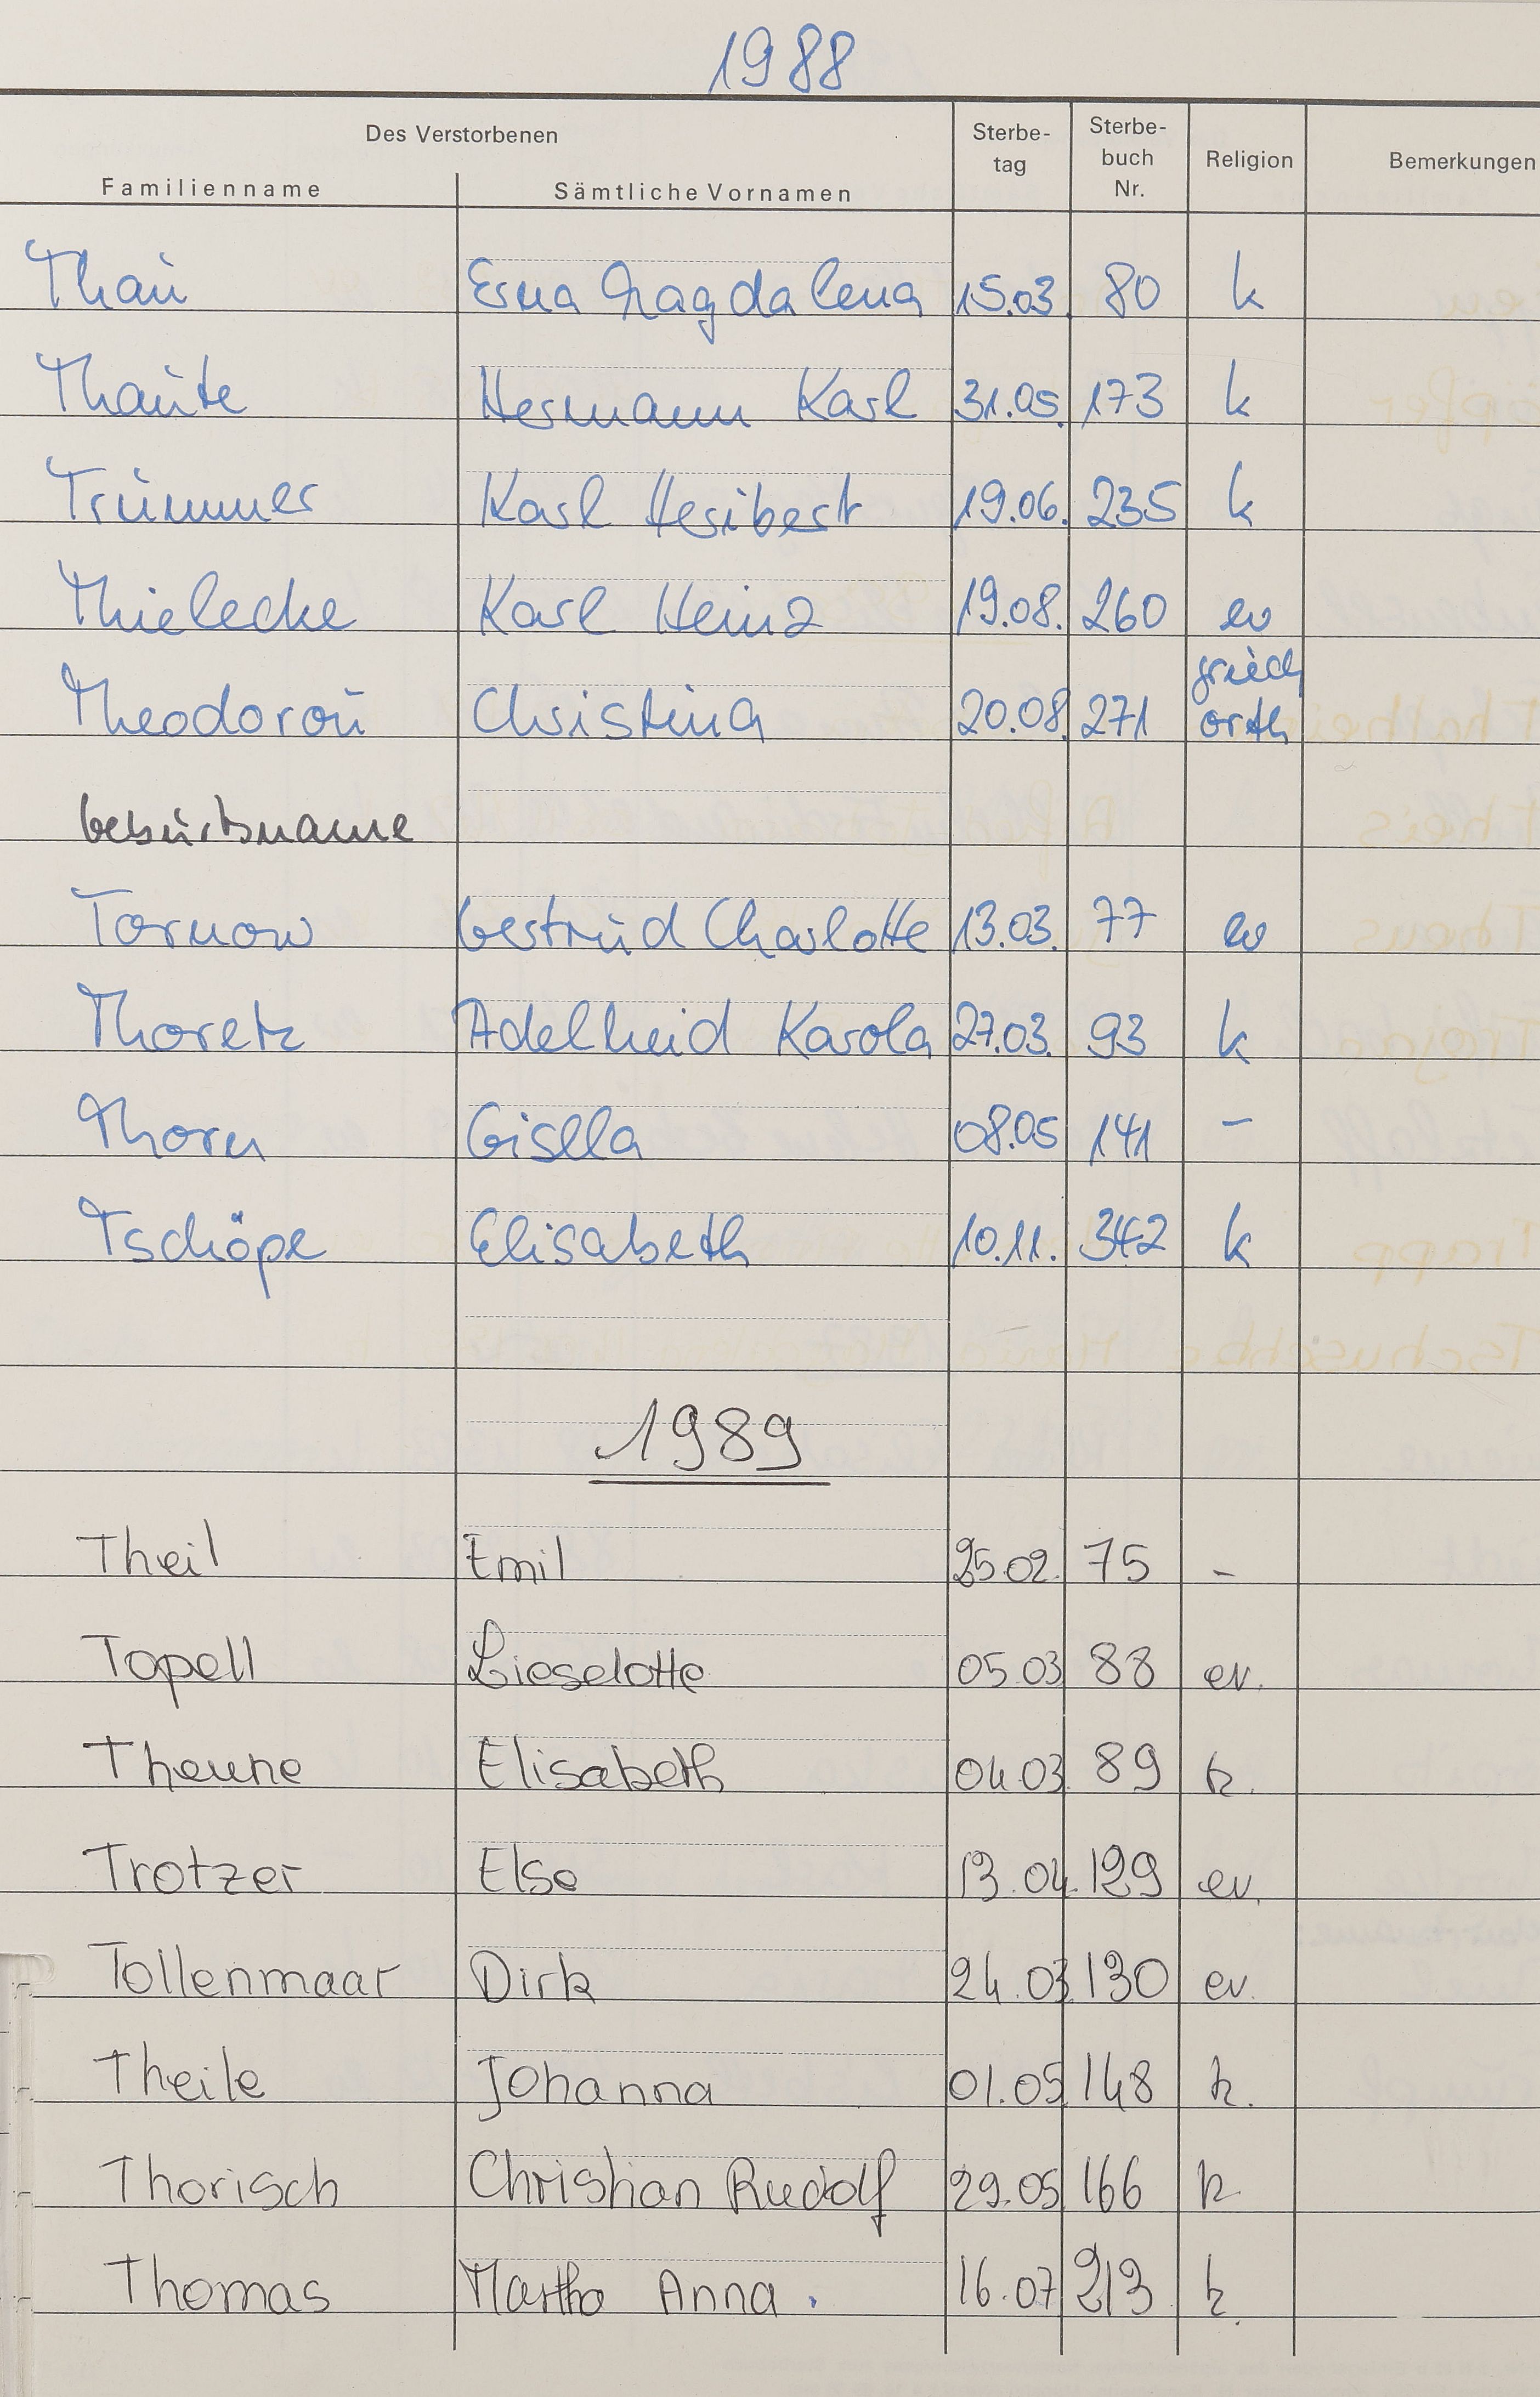 1988
Des Verstorbenen
Familienname Sämtliche Vornamen Sterbe-tag Sterbe-buch Nr. Religion Bemerkungen
Thau Erna Magdalena 15.03. 80 k
Thaute Hermann Karl 31.05. 173 k
Trümmer Karl Heribert 19.06. 235 k
Thielecke Karl Heinz 19.08. 260 ev
Theodorou Christina 20.08. 271 griech orth
Geburtsname
Tornow Gertrud Charlotte 13.03. 77 ev
Thoretz Adelheid Karola 27.03. 93 k
Thorn Gisela 08.05 141 –
Tschöpe Elisabeth 10.11. 342 k
1989
Theil Emil 25.02. 75 –
Topell Lieselotte 05.03 88 ev.
Theune Elisabeth 04.03. 89 k.
Trotzer Else 13.04. 129 ev.
Tollenmaar Dirk 24.03. 130 ev.
Theile Johanna 01.05 148 k.
Thorisch Christian Rudolf 29.05 166 k.
Thomas Martha Anna. 16.07 213 k.